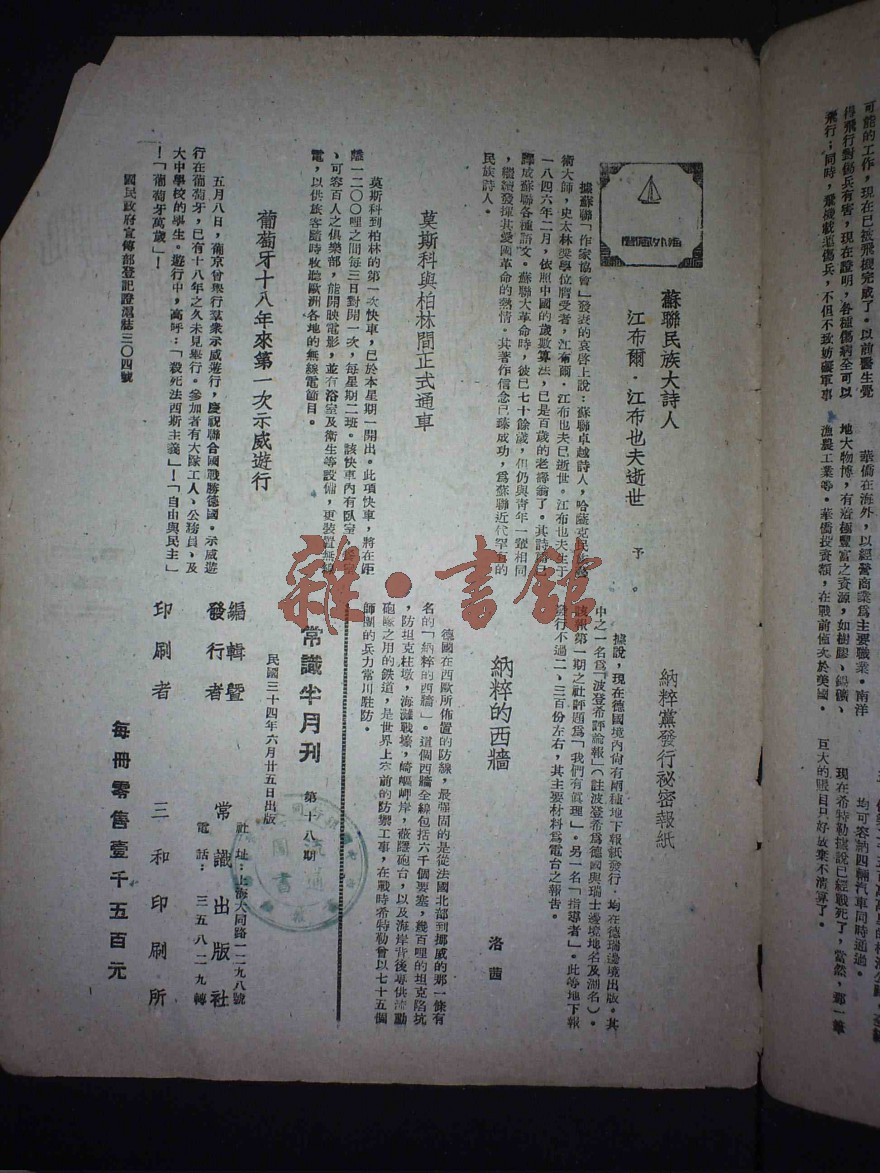 海外短聞
蘇聯民族大詩人
江布爾·江布也夫逝世
予。
據蘇聯「作家協會」發表的哀啓上說:蘇聯卓越詩人,哈薩克民族藝
術大師,史太林獎學位膺受者,江布爾·江布也夫已逝世。江布也夫生于
一八四六年二月,依照中國的歲數算法,已是百歲的老壽翁了。其詩篇已
譯成蘇聯各種語文。蘇聯大革命時,彼已七十餘歲,但仍與青年一輩相同
,繼續發揮其愛國革命的熱情。其著作信念已臻成功,爲蘇聯近代罕有的
民族詩人。
莫斯科與柏林間正式通車
莫斯科到柏林的第一次快車,已於本星期一開出。此項快車,將在距
離一二〇〇哩之間每三日對開一次,每星期二班。該快車內有臥室
、可容百人之俱樂部,能開映電影,並有浴室及衛生等設備,更裝置無線
電,以供旅客隨時收聽歐洲各地的無線電節目。
葡萄牙十八年來第一次示威遊行
五月八日,葡京曾舉行羣衆示威遊行,慶祝聯合國戰勝德國。示威遊
行在葡萄牙,已有十八年之久未見舉行。參加者有大隊工人、公務員,及
大中學校的學生。遊行中,高呼:「殺死法西斯主義」!「自由與民主」
!「葡萄牙萬歲」!
國民政府宣傳部登記證滬誌三〇四號
納粹黨發行祕密報紙
據說,現在德國境內尙有兩種地下報紙發行,均在德瑞邊境出版。其
中之一名爲「波登希評論報」(註波登希爲德國與瑞士邊境地名及湖名)。
該報第一期之社評題爲「我們有眞理」。另一名「指導者」。此等地下報
發行不過二、三百份左右,其主要材料爲電台之報告。
納粹的西牆
洛茜
德國在西歐所佈置的防線,最強固的是從法國北部到挪威的那一條有
名的「納粹的西牆」。這個西牆全線包括六千個要塞,幾百哩的坦克陷坑
,防坦克柱墩,海灘戰壕,崎嶇岬岸,蔽隱砲台,以及海岸背後專供流動
砲隊之用的鉄道,是世界上空前的防禦工事,在戰時希特勒曾以七十五個
師團的兵力常川駐防。
常識半月刊 第十八期
民國三十四年六月廿五日出版
編輯暨
發行者 常識出版社
社址:上海大同路一二九八號
電話:三五八二九轉
印刷者 三和印刷所
每冊零售壹千五百元
雜·書館
可能的工作,現在已被飛機完成了。以前醫生覺
得飛行對傷兵有害,現在證明,各種傷病全可以
飛行;同時,飛機載運傷兵,不但不致妨礙軍事
華僑在海外,以經營商業爲主要職業。南洋
地大物博,有着極豐富之資源,如樹膠、錫礦、
漁農工業等。華僑投資額,在戰前僅次於美國。
均可容納四輛汽車同時通過。
現在希特勒據說已經戰死了,當然,那一筆
巨大的賬目只好放棄不淸算了。